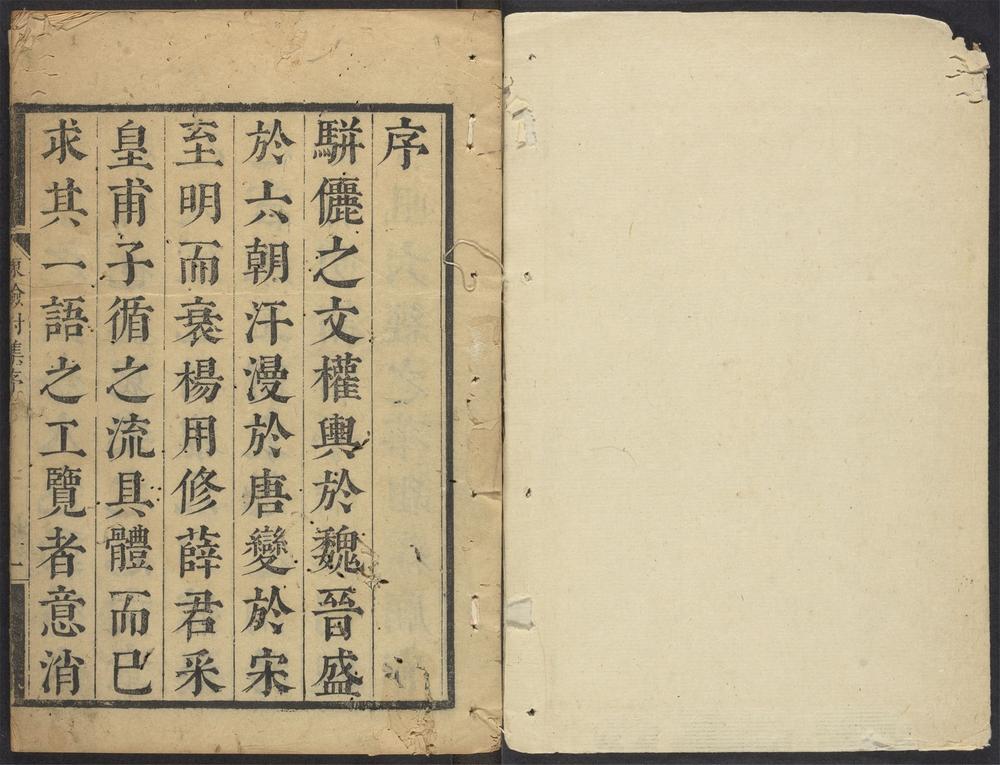 序
駢儷之文權輿於魏晉盛
於六朝汗漫於唐變於宋
至明而衰楊用修薛君采
皇甫子循之流具體而已
求其一語之工覽者意消
檢討集序